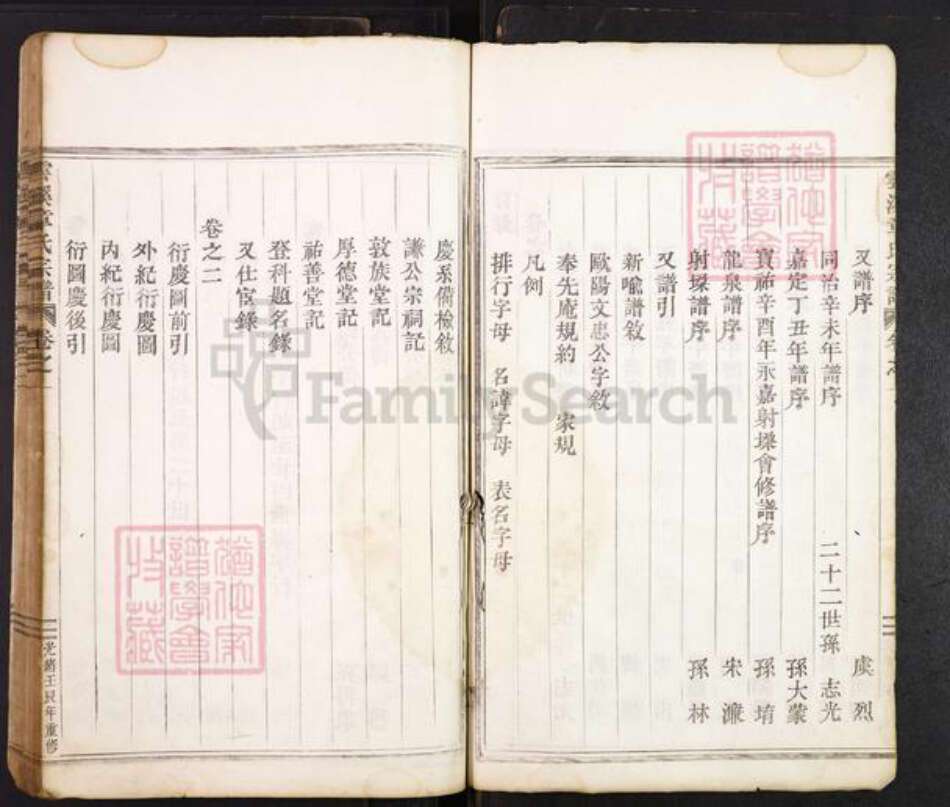 又譜序 虞烈
同治辛未年譜序 二十二世孫 志光
嘉定丁丑年譜序 孫大蒙
寶祐辛酉年永嘉射塨會修譜序 孫堉
龍泉譜序 宋濂
射塨譜序 孫林
又譜引
新喻譜敘
歐陽文忠公字敘
奉先庵規約 家規
凡例
排行字母 名諱字母 表名字母
慶系備檢敘
謙公宗祠記
敦族堂記
厚德堂記
祐善堂記
登科題名錄
又仕宦錄
卷之二
衍慶圖前引
外紀衍慶圖
內紀衍慶圖
衍圖慶後引
章氏宗譜
光緒壬辰年重修
FamilySearch